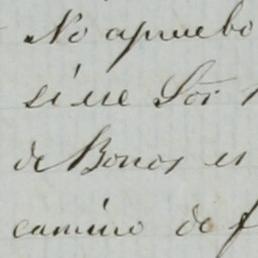 No apruebo
sine Sor
de Bonos en
camino de f